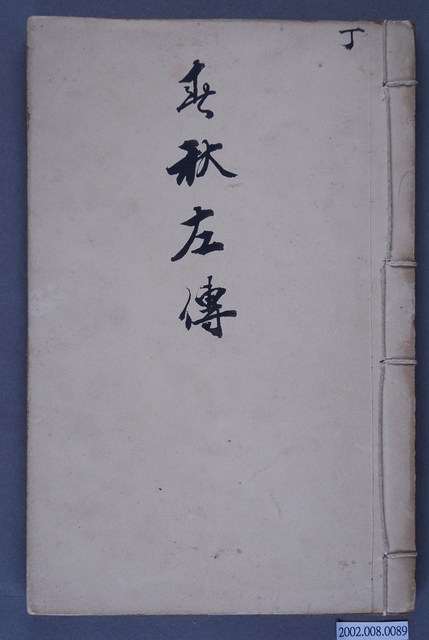 丁
春秋左傳
2002.008.0089